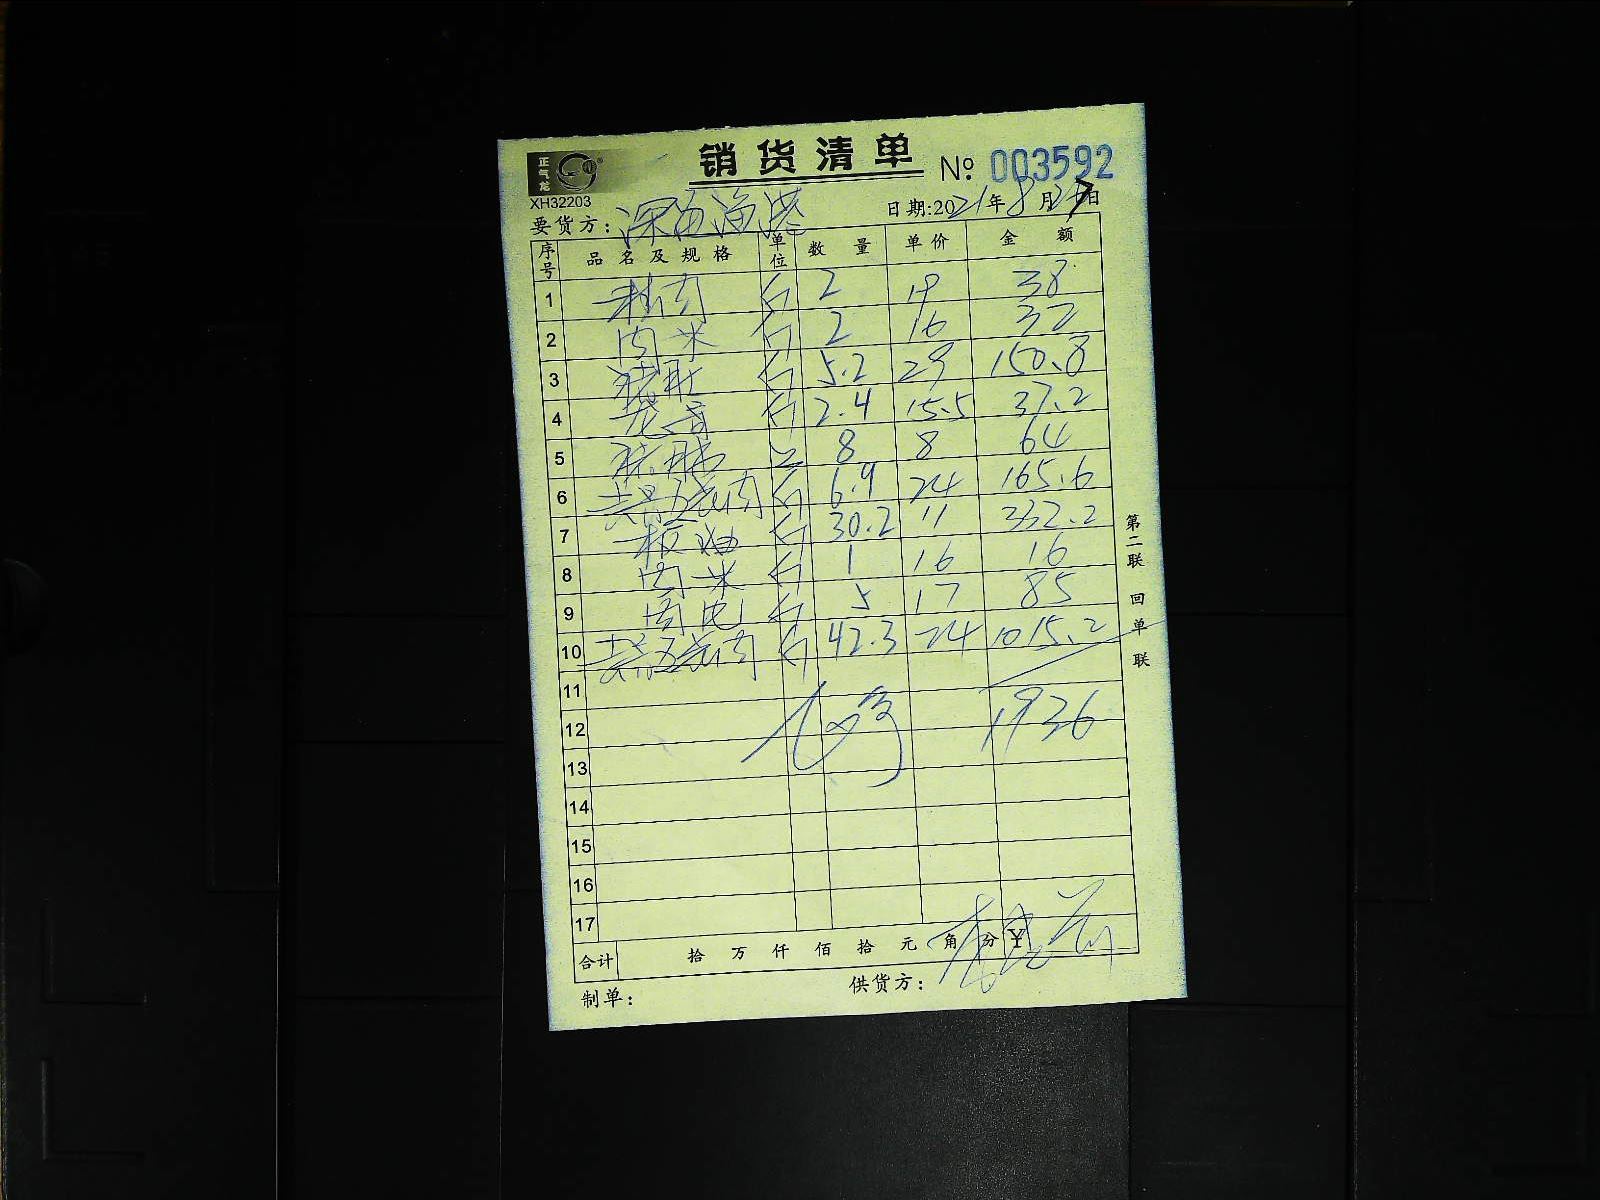 正气龙
销货清单 № 003592
XH32203
日期:2021年8月27日
要货方：深海渔港
序号 品名及规格 单位 数量 单价 金额
1 精肉 斤 2 19 38
2 肉米 斤 2 16 32
3 猪肚 斤 5.2 29 150.8
4 龙骨 斤 2.4 15.5 37.2
5 猪脑 8 8 64
6 去骨五花肉 斤 6.9 24 165.6
7 板油 斤 30.2 11 332.2
8 肉米 斤 1 16 16
9 斤 5 17 85
10 去骨五花肉 斤 42.3 24 1015.2
11
12 1936
13
14
15
16
17
合计 拾 万 仟 佰 拾 元 角 分 ¥
制单： 供货方：
第二联 回单联